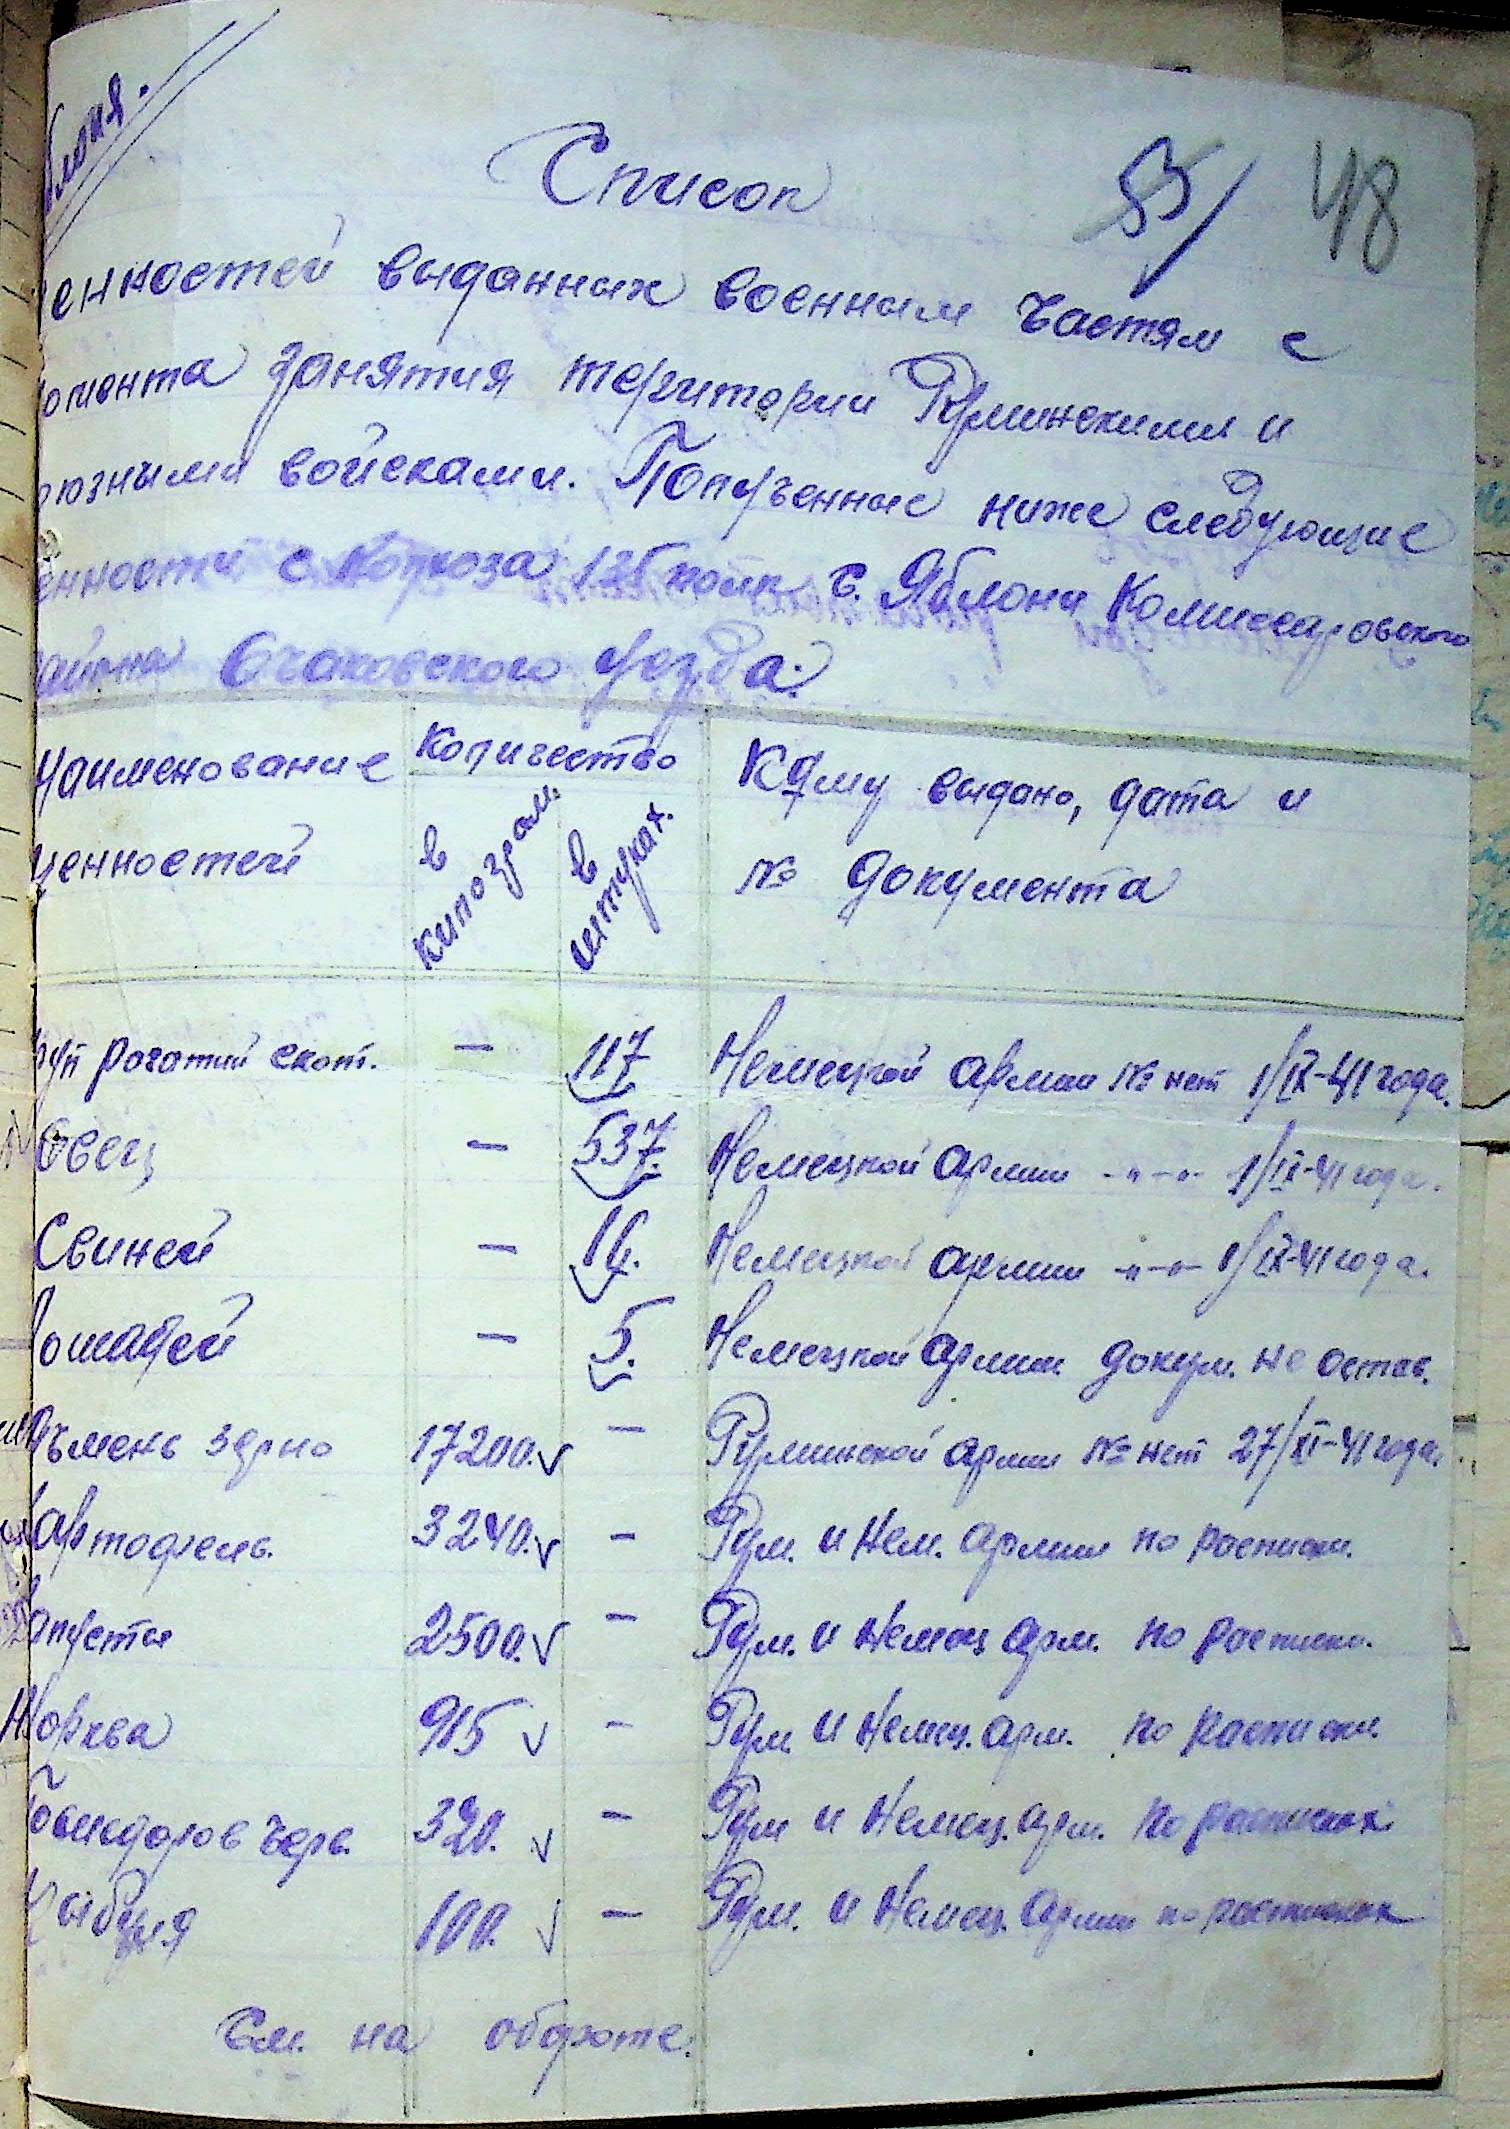 блоня.
Список
53/ 48
енностей выданных военным частям с
омента занятия територии Румынскими и
оюзными войсками. Полученные ниже следующие
енности с колхоза 125 полк с. Яблони Комиссаровского
айона Очаковского уезда.
Наименование ценностей
Количество
в килограм.
в штуках.
Кому выдано, дата и
№ документа
руп рогатый скот. — 117 Немецкой армии № нет 1/IX-41 года.
Овец — 537. Немецкой армии -"-"- 1/IX-41 года.
Свиней — 16. Немецкой армии -"-"- 1/IX-41 года.
ошадей — 5. Немецкой армии докум. не остав.
Ячмень зерно 17200. — Румынской армии № нет 27/XI-41 года.
артофель. 3240. — Рум. и Нем. армии по расписки.
апусты 2500. — Рум. и Немец арм. по расписки.
Морква 915 — Рум. и Немец. арм. по расписки.
Помидоров черв. 320. — Рум и Немец. арм. по расписках
Цыбуля 100. — Рум. и Немец. армии по расписках
См. на обороте.